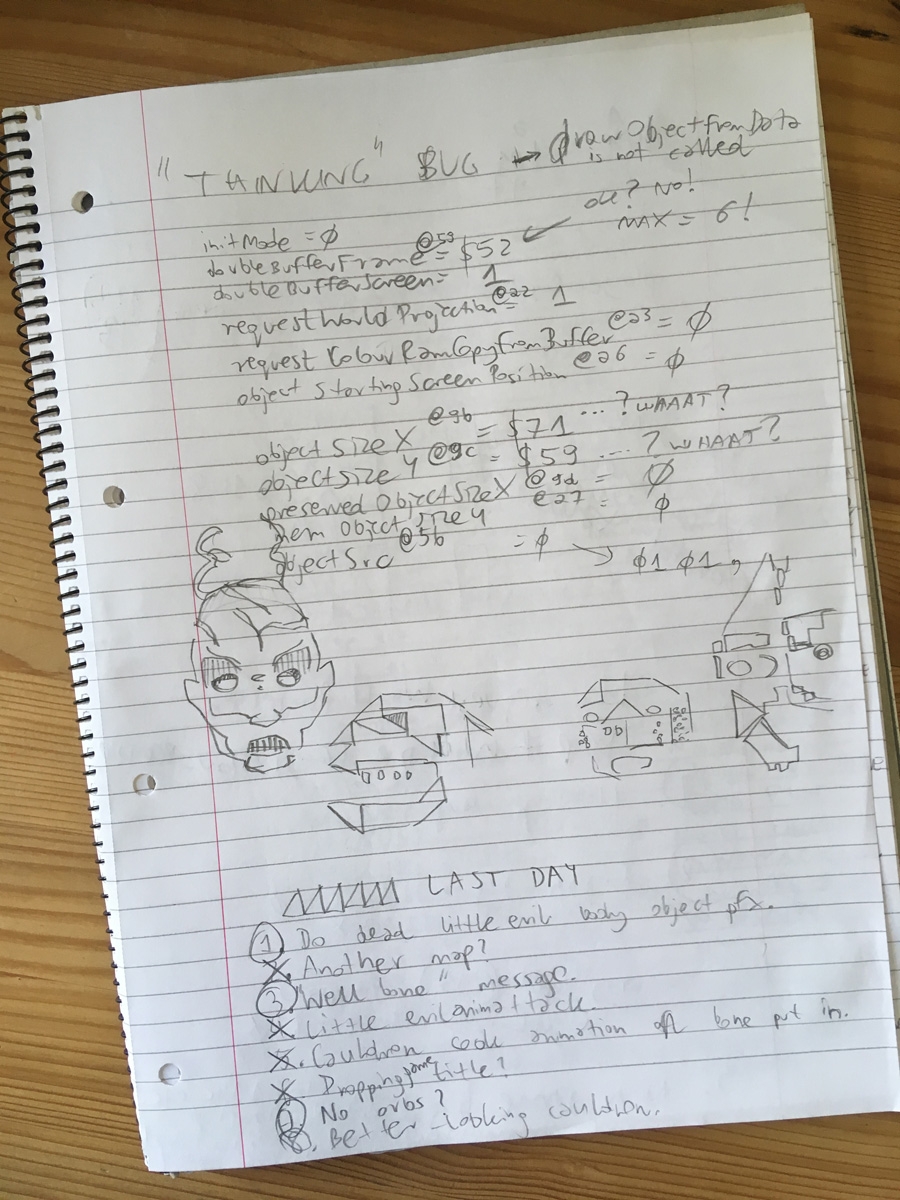 "THINKING" BUG → drawObjectfromData
is not called
ok? No!
MAX = 6!
initMode = Ø
doubleBufferFrame @59 = $52
doubleBufferScreen = 1
requestWorldProjection @22 = 1
requestColourRamCopyFromBuffer @23 = Ø
object StartingScreenPosition @26 = Ø
objectSizeX @9b = $71 ... ? WHAAT?
objectSizeY @9c = $59 .... ? WHAAT?
preserved ObjectSizeX @9d = Ø
Object SizeY @27 = Ø
ObjectSrc @5b = Ø → Ø1 Ø1
LAST DAY
1 Do dead little evil body object pfx.
Another map?
3. "Well bone" message.
Little evil anim attack.
Cauldron cook animation of bone put in.
Dropping some title?
No orbs?
8. Better-looking cauldron.